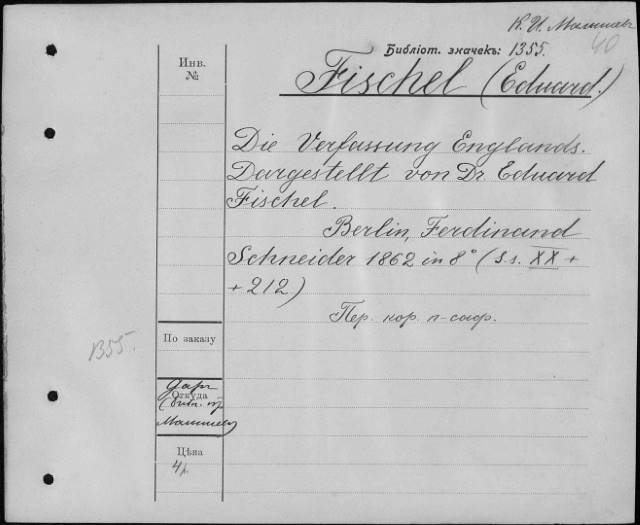 К. И. Малышев
40
Библіот. значекъ: 1355.
Инв.
№
Fischel (Eduard.)
Die Verfassung Englands.
Dargestellt von Dr Eduard
Fischel.
Berlin, Ferdinand
Schneider 1862 in 8° (S.s. XX +
+ 212)
Пер. кор. п-саф.
По заказу
1355.
Даръ
Откуда
Малышев
Цѣна
4р.